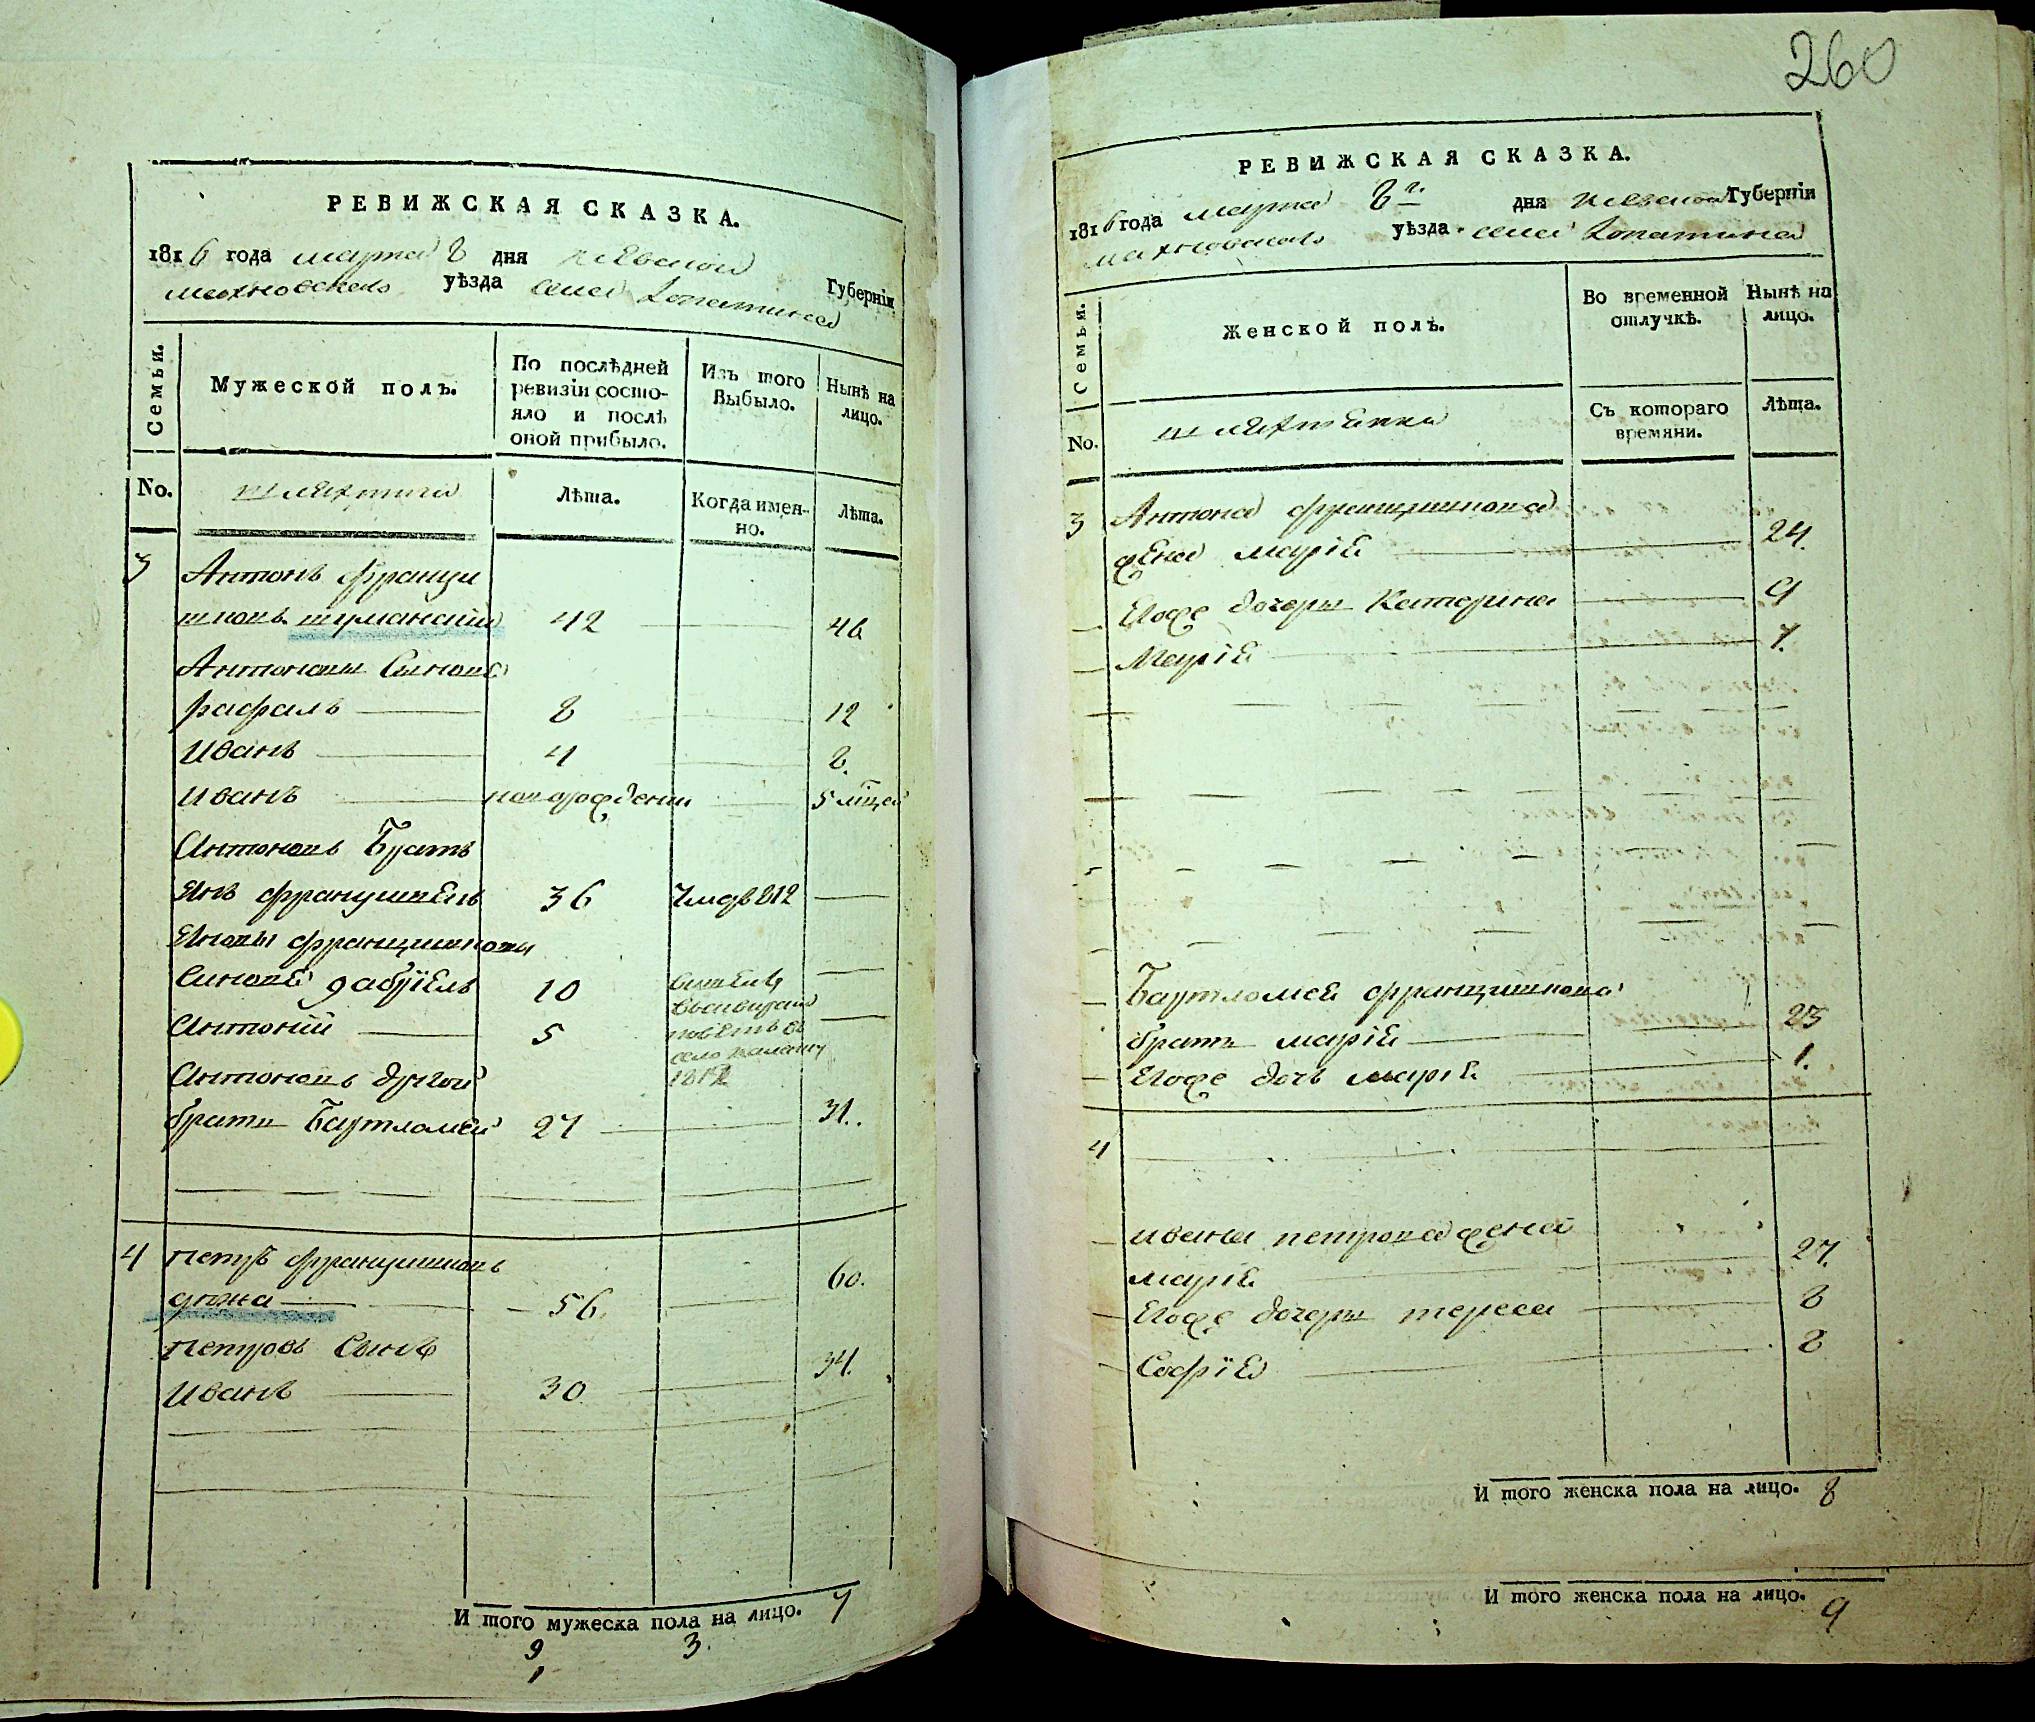 РЕВИЖСКАЯ СКАЗКА.
1816 года марта 8 дня киевской Губернiи
махновскаго уѣзда села Лопатина
Семьи.
Мужеской полъ.
По послѣдней ревизiи состо-
яло и послѣ
оной прибыло.
Изъ того
Выбыло.
Нынѣ на
лицо.
No.
шляхтичи
Лѣта.
Когда имен-
но.
Лѣта.
3 Антонъ франци
шковъ шуманский 42 46
Антоновы Сынове
рафаль 8 12
Иванъ 4 8.
Иванъ новорожденны 5 мѣцей
Антоновъ Братъ
Янъ францишковъ 36 812
Яновы францишковы
Синове габрiель 10
Антонiй 5
село
Антоновъ другой
братъ Бартломей 27 31.
4 петръ францишковъ
60.
56.
петровъ Сынъ
Иванъ 30 34.
И того мужеска пола на лицо. 7
9 3.
1
260
РЕВИЖСКАЯ СКАЗКА.
1816 года марта 8г. дня киевской Губернiи
махновскаго уѣзда села Лопатина
Семьи.
Женской полъ.
Во временной
отлучкѣ.
Нынѣ на
лицо.
No.
шляхтянки
Съ котораго
времяни.
Лѣта.
3 Антона францишкова
жена марiя 24.
Егоже дочеры Катерина 9
Марiя 7.
Бартломея францишкова
брата марiя 23
Егоже дочь марiя 1.
4
ивана петрова жена
марiя 27.
Егоже дочеры тереса 8
Софiя 8
И того женска пола на лицо. 8
И того женска пола на лицо. 9